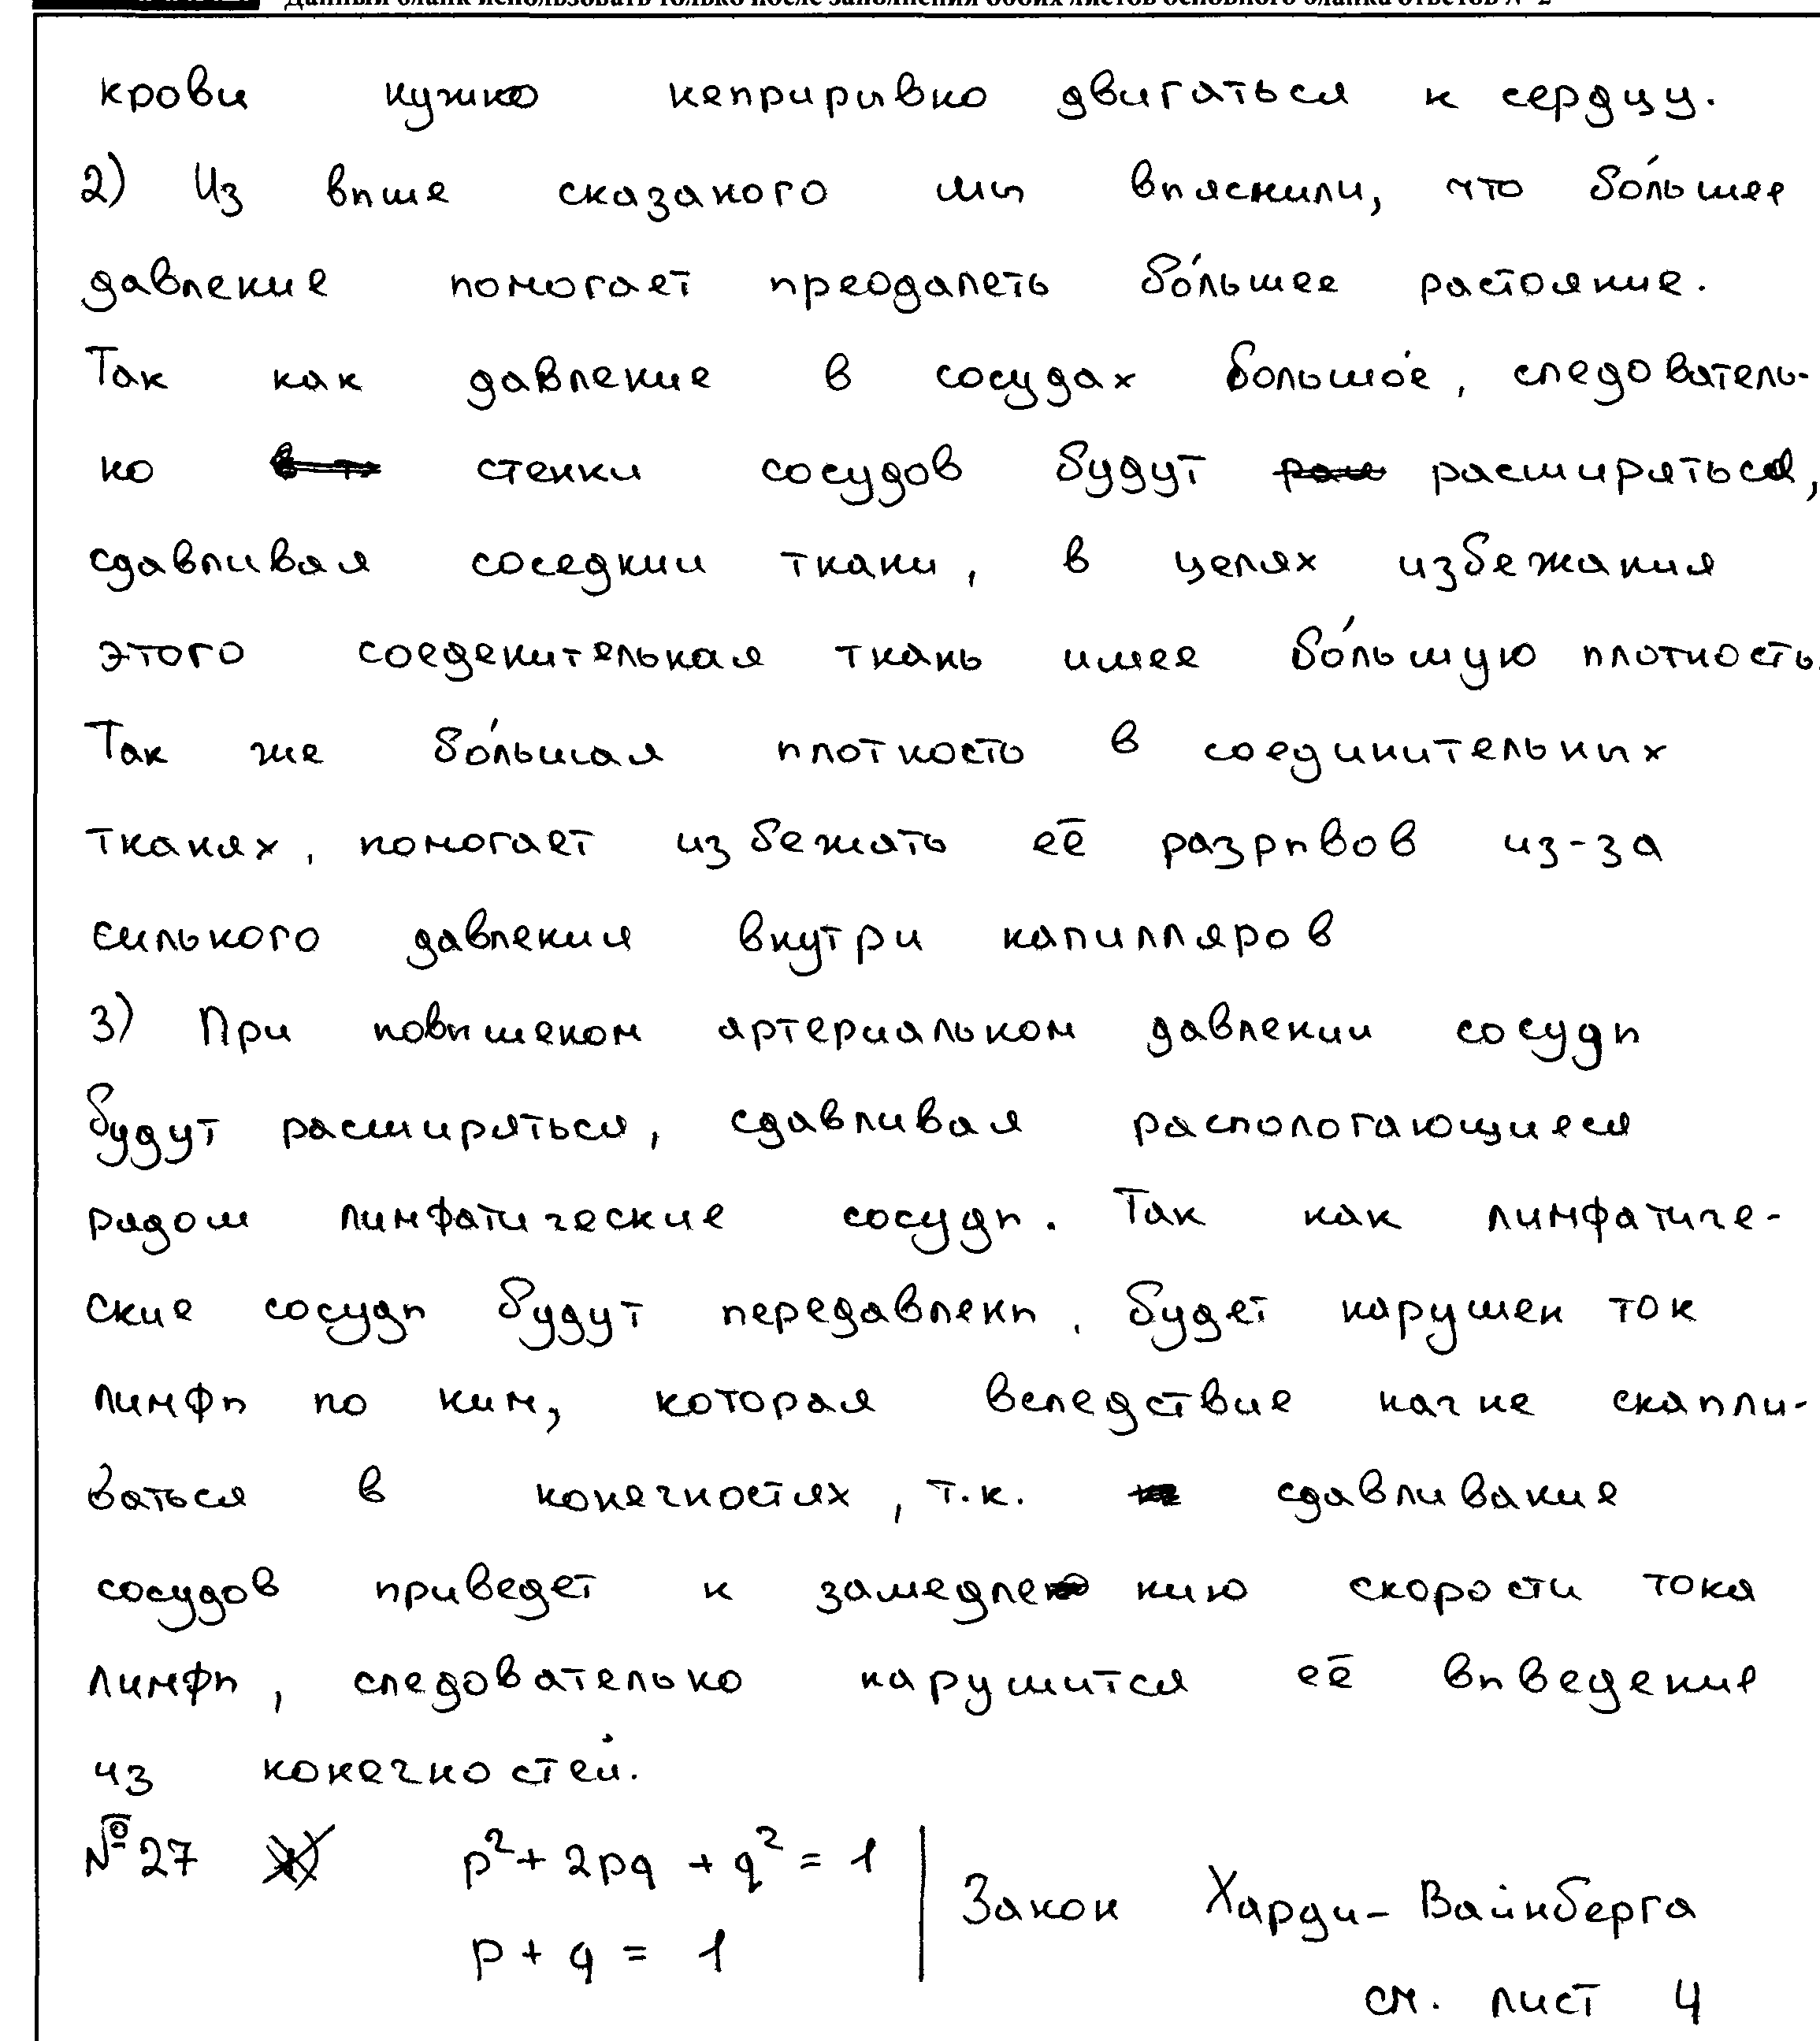 Данный бланк использовать только после заполнения обоих листов основного бланка ответов № 2
крови нужно неприривно двигаться к сердцу.
2) Из выше сказаного мы выяснили, что бо́льшее
давление помогает преодалеть бо́льшее растояние.
Так как давление в сосудах большо́е, следователь-
но стенки сосудов будут расширяться,
сдавливая соседнии ткани, в целях избежания
этого соеденительная ткань имее бо́льшую плотность.
Так же бо́льшая плотность в соединительных
тканях, помогает избежать её разрывов из-за
сильного давления внутри капилляров
3) При повышеном артериальном давлении сосуды
будут расширяться, сдавливая распологающиеся
рядом лимфатические сосуды. Так как лимфатиче-
ские сосуды будут передавлены, будет нарушен ток
лимфы по ним, которая вследствие начне скапли-
ваться в конечностях, т.к. сдавливание
сосудов приведет к замедле нию скорости тока
лимфы, следовательно нарушится её выведение
из конечностей.
№27 p²+ 2pq + q² = 1 | Закон Харди-Вайнберга
p + q = 1
см. лист 4